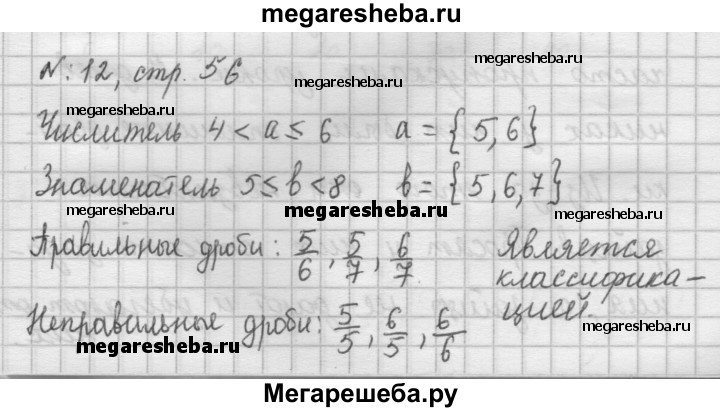 megaresheba.ru
№: 12, стр. 56
megaresheba.ru
megaresheba.ru
Числитель 4 < a ≤ 6 a = {5, 6}
megaresheba.ru
Знаменатель 5 ≤ b < 8 b = {5, 6, 7}
megaresheba.ru megaresheba.ru megaresheba.ru
Правильные дроби: 5/6, 5/7, 6/7 Является
классифика-
цией.
Неправильные дроби: 5/5, 6/5, 6/6
megaresheba.ru megaresheba.ru
Мегарешеба.ру